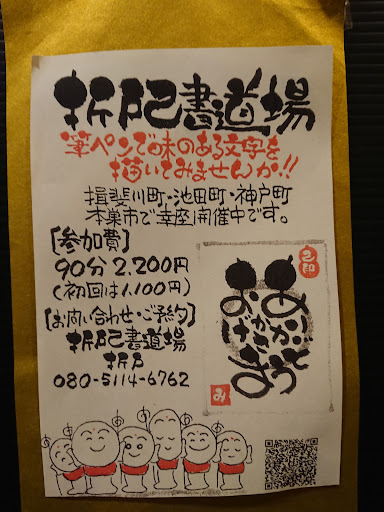 折戸己書道場
筆ペンで味のある文字を
描いてみませんか!!
揖斐川町・池田町・神戸町
本巣市で幸座開催中です。
[参加費]
90分 2,200円
(初回は1,100円)
[お問い合わせ・ご予約]
折戸己書道場
折戸
080-5114-6762
ありがとう
おかげさま
み